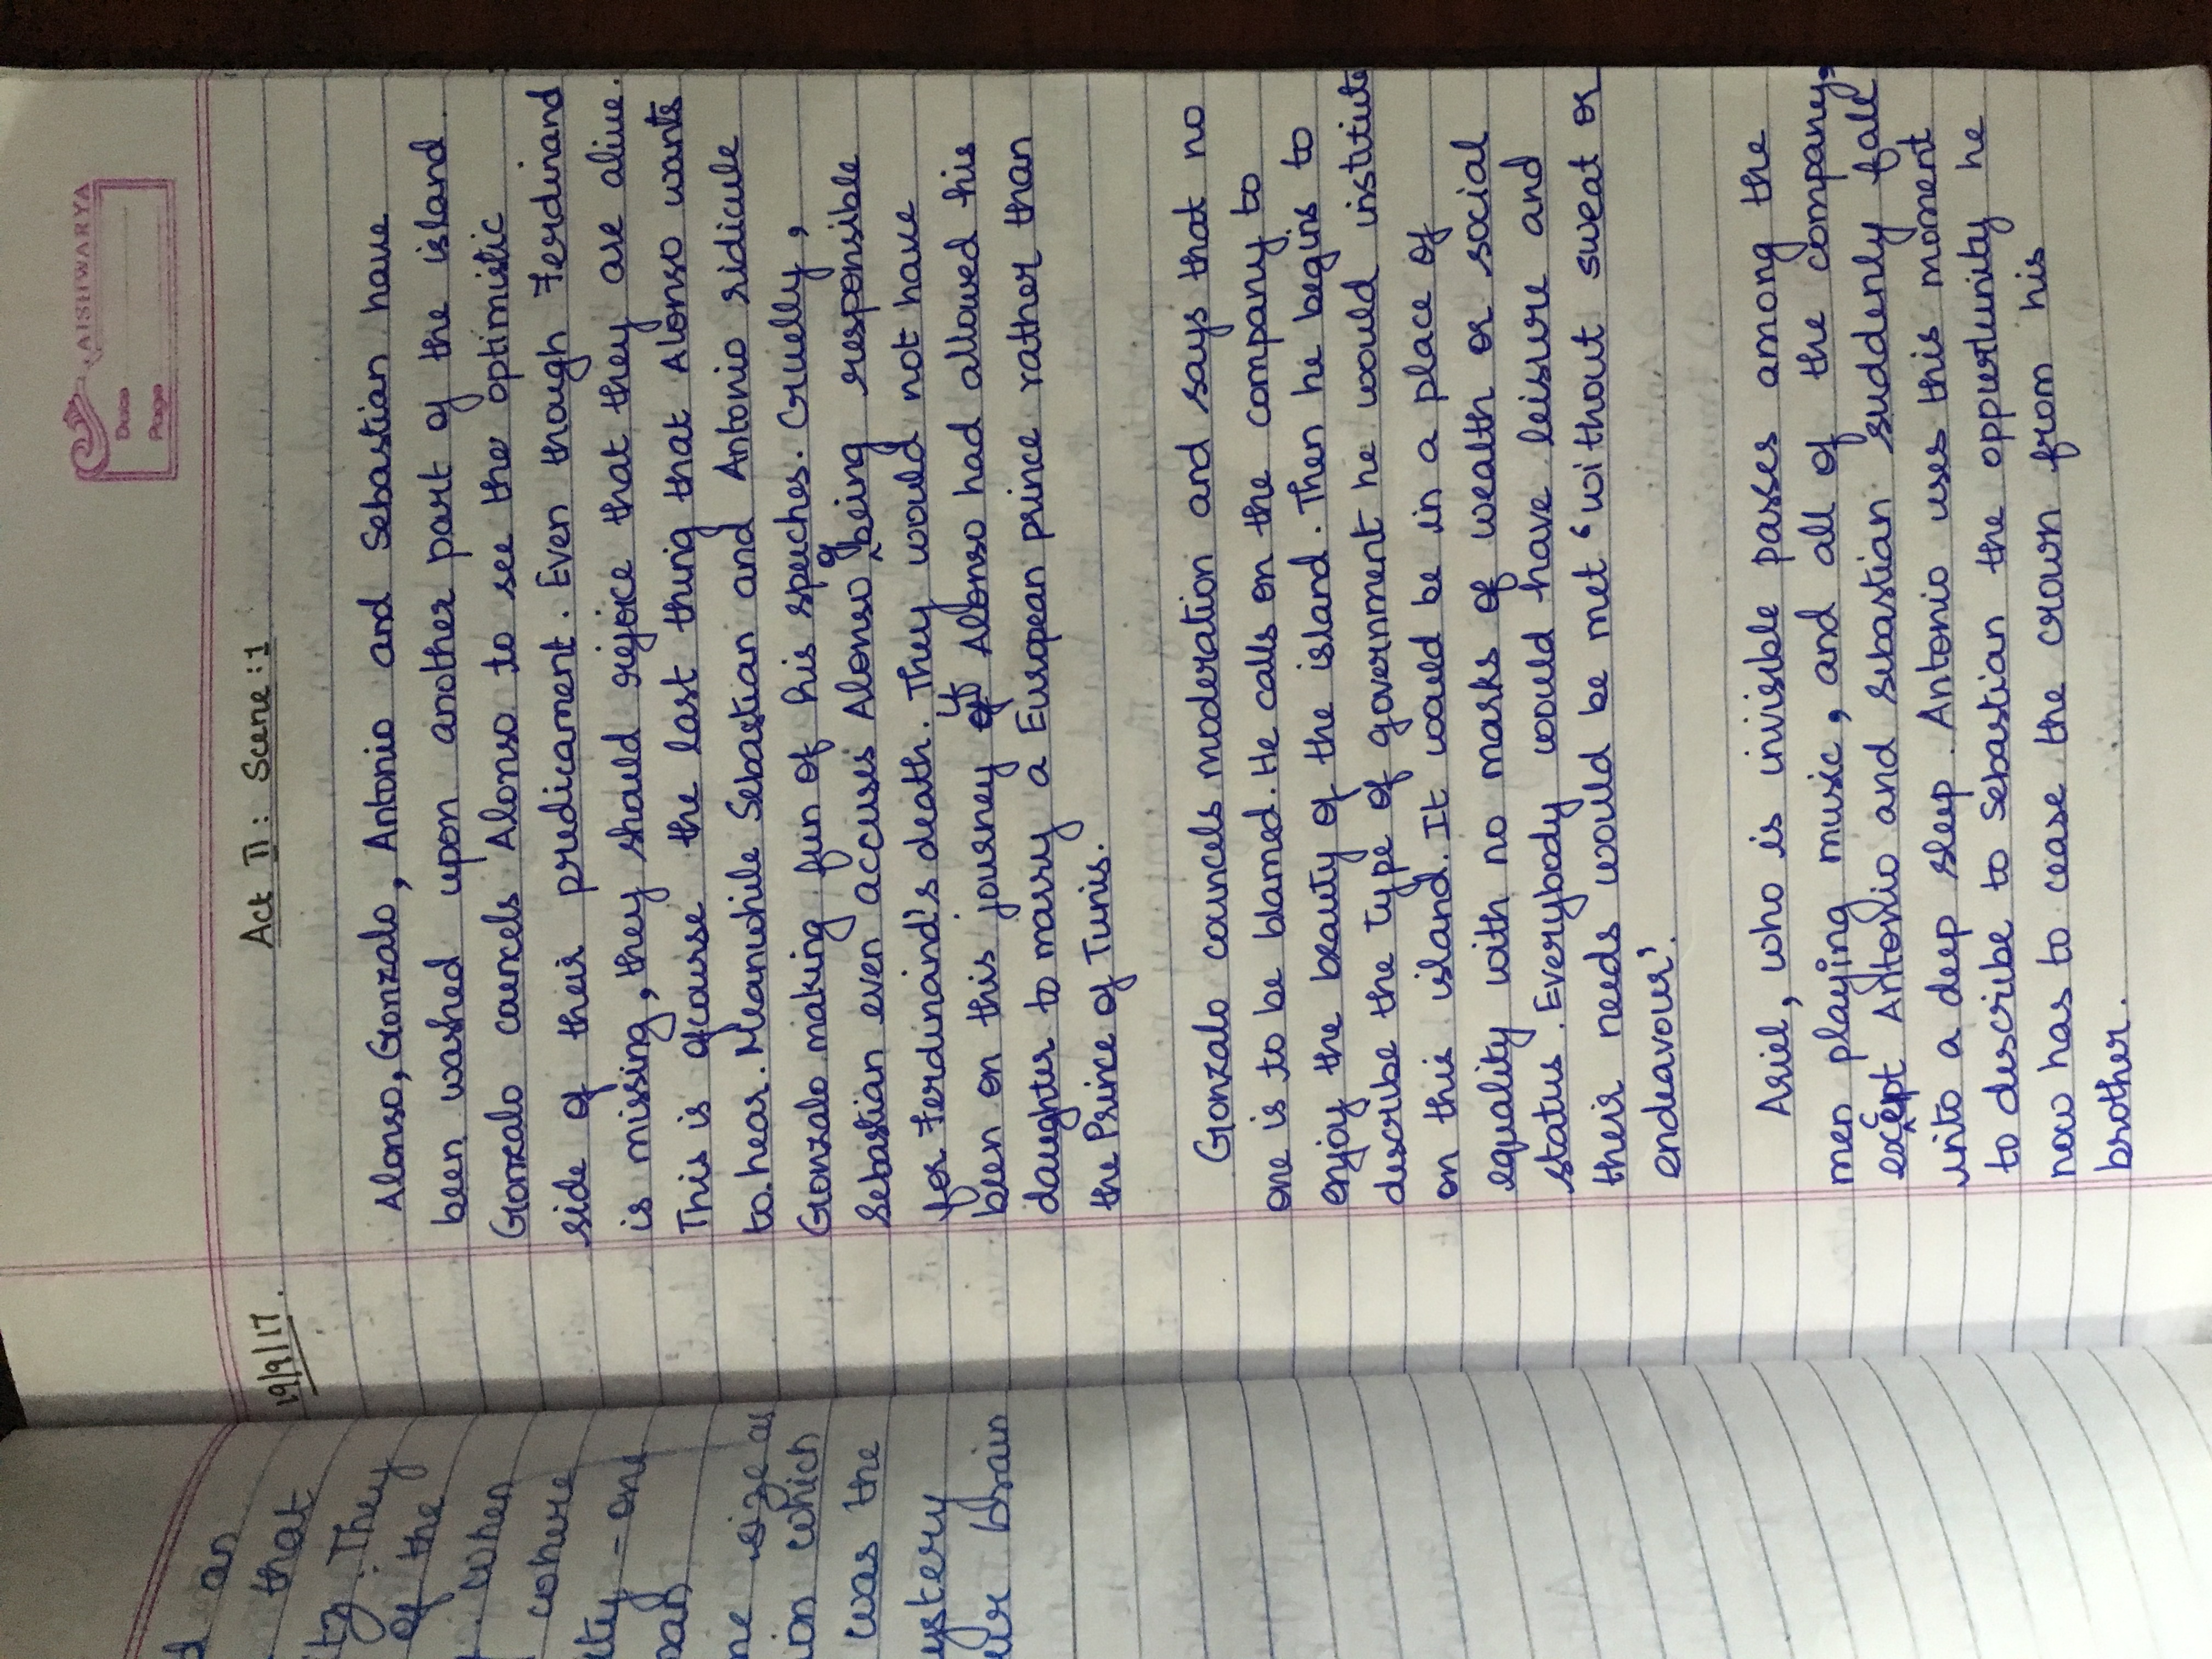 d as
that
itz. They
of the
. when
where
ity - one
ban
me size as
ion which
was the
ystery
ur brain
AISHWARYA
Date
Page
19/9/17.
Act II : Scene : 1
Alonso, Gonzalo, Antonio and Sebastian have
been washed upon another part of the island.
Gonzalo councels Alonso to see the optimistic
side of their predicament. Even though Ferdinand
is missing, they should rejoice that they are alive.
This is ofcourse the last thing that Alonso wants
to hear. Meanwhile Sebastian and Antonio ridicule
Gonzalo making fun of his speeches. Cruelly,
Sebastian even accuses Alonso of being responsible
for Ferdinand's death. They would not have
been on this journey if Alonso had allowed his
daughter to marry a European prince rather than
the Prince of Tunis.
Gonzalo councels moderation and says that no
one is to be blamed. He calls on the company to
enjoy the beauty of the island. Then he begins to
describe the type of government he would institute
on this island. It would be in a place of
equality with no marks of wealth or social
status. Everybody would have leisure and
their needs would be met 'without sweat or
endeavour'.
Ariel, who is invisible passes among the
men playing music, and all of the company,
except Antonio and Sebastian suddenly fall
into a deep sleep. Antonio uses this moment
to describe to Sebastian the oppurtunity he
now has to cease the crown from his
brother.